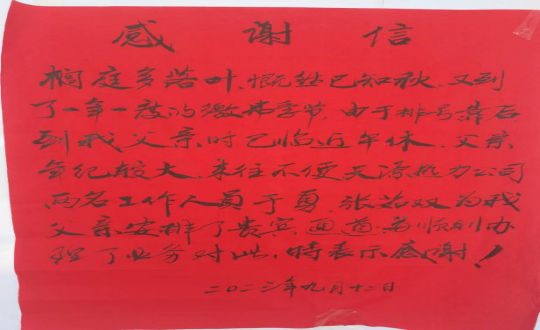 感谢信
桐庭多落叶，慨然已知秋，又到
了一年一度的缴费季节，由于排号靠后
到我父亲时已临近午休，父亲
年纪较大，来往不便天源热力公司
两名工作人员于勇，张茹双为我
父亲安排了贵宾通道并顺利办
理了业务对此，特表示感谢！
二〇二三年九月十二日